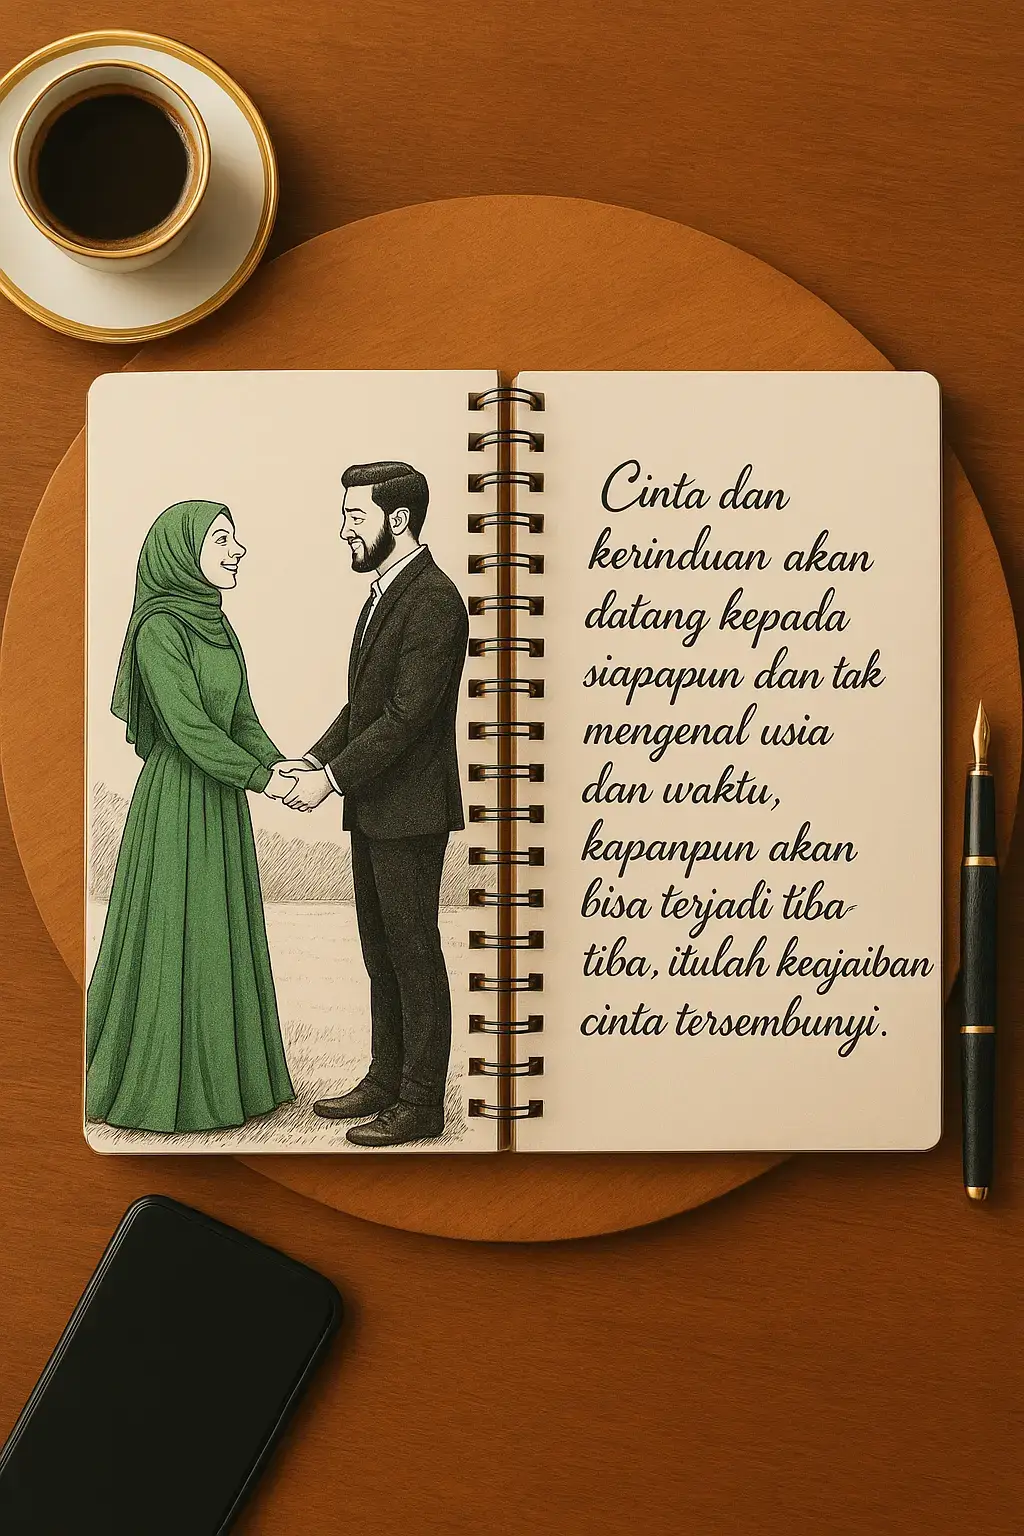 Cinta dan
kerinduan akan
datang kepada
siapapun dan tak
mengenal usia
dan waktu,
kapanpun akan
bisa terjadi tiba-
tiba, itulah keajaiban
cinta tersembunyi.